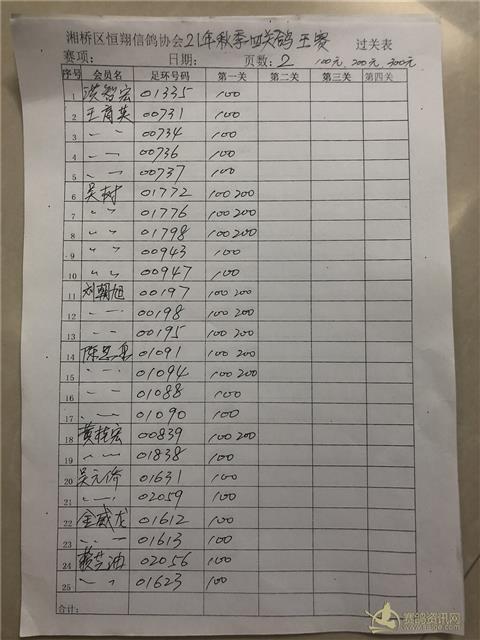 湘桥区恒翔信鸽协会21年秋季四关鸽王赛 过关表
赛项: 日期: 页数: 2 100元, 200元, 300元
序号 会员名 足环号码 第一关 第二关 第三关 第四关
1 洪智宏 01335 100
2 王育英 00731 100
3 〃 〃 00734 100
4 〃 〃 00736 100
5 〃 〃 00737 100
6 吴树 01772 100 200
7 〃 〃 01776 100 200
8 〃 〃 01798 100 200
9 〃 〃 00943 100
10 〃 〃 00947 100
11 刘朝旭 00197 100 200
12 〃 〃 00198 100
13 〃 〃 00195 100
14 陈忠 01091 100 200
15 〃 〃 01094 100 200
16 〃 〃 01088 100
17 〃 〃 01090 100
18 黄桂宏 00839 100 200
19 〃 〃 01838 100
20 吴元侨 01631 100
21 〃 〃 02059 100
22 金威龙 01612 100
23 〃 〃 01613 100
24 赖 油 02056 100
25 〃 〃 01623 100
合计:
赛鸽资讯网